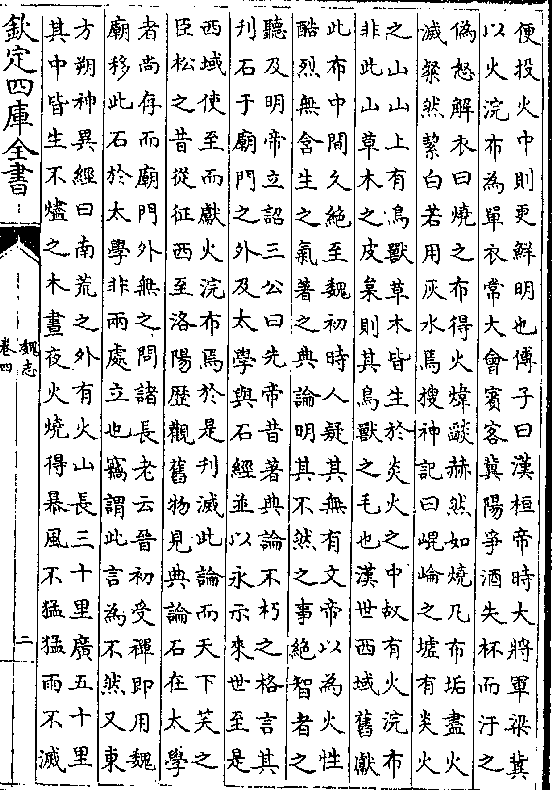 便投火中則更鮮明也傅子曰漢桓帝時大將軍梁冀
以火浣布為單衣常大會賓客冀陽爭酒失杯而汙之
偽怒解衣曰燒之布得火煒爗赫然如燒凡布垢盡火
滅粲然絜白若用灰水焉搜神記曰崐崙之墟有炎火
之山山上有鳥獸草木皆生於炎火之中故有火浣布
非此山草木之皮枲則其鳥獸之毛也漢世西域舊獻
此布中間久絕至魏初時人疑其無有文帝以為火性
酷烈無含生之氣著之典論明其不然之事絕智者之
聽及明帝立詔三公曰先帝昔著典論不朽之格言其
刋石于廟門之外及太學與石經並以永示來世至是
西域使至而獻火浣布焉於是刋滅此論而天下笑之
臣松之昔從征西至洛陽歴觀舊物見典論石在太學
者尚存而廟門外無之問諸長老云晉初受禪即用魏
廟移此石於太學非兩處立也竊謂此言為不然又東
方朔神異經曰南荒之外有火山長三十里廣五十里
其中皆生不燼之木晝夜火燒得暴風不猛猛雨不滅
欽定四庫全書
魏志
卷四
二